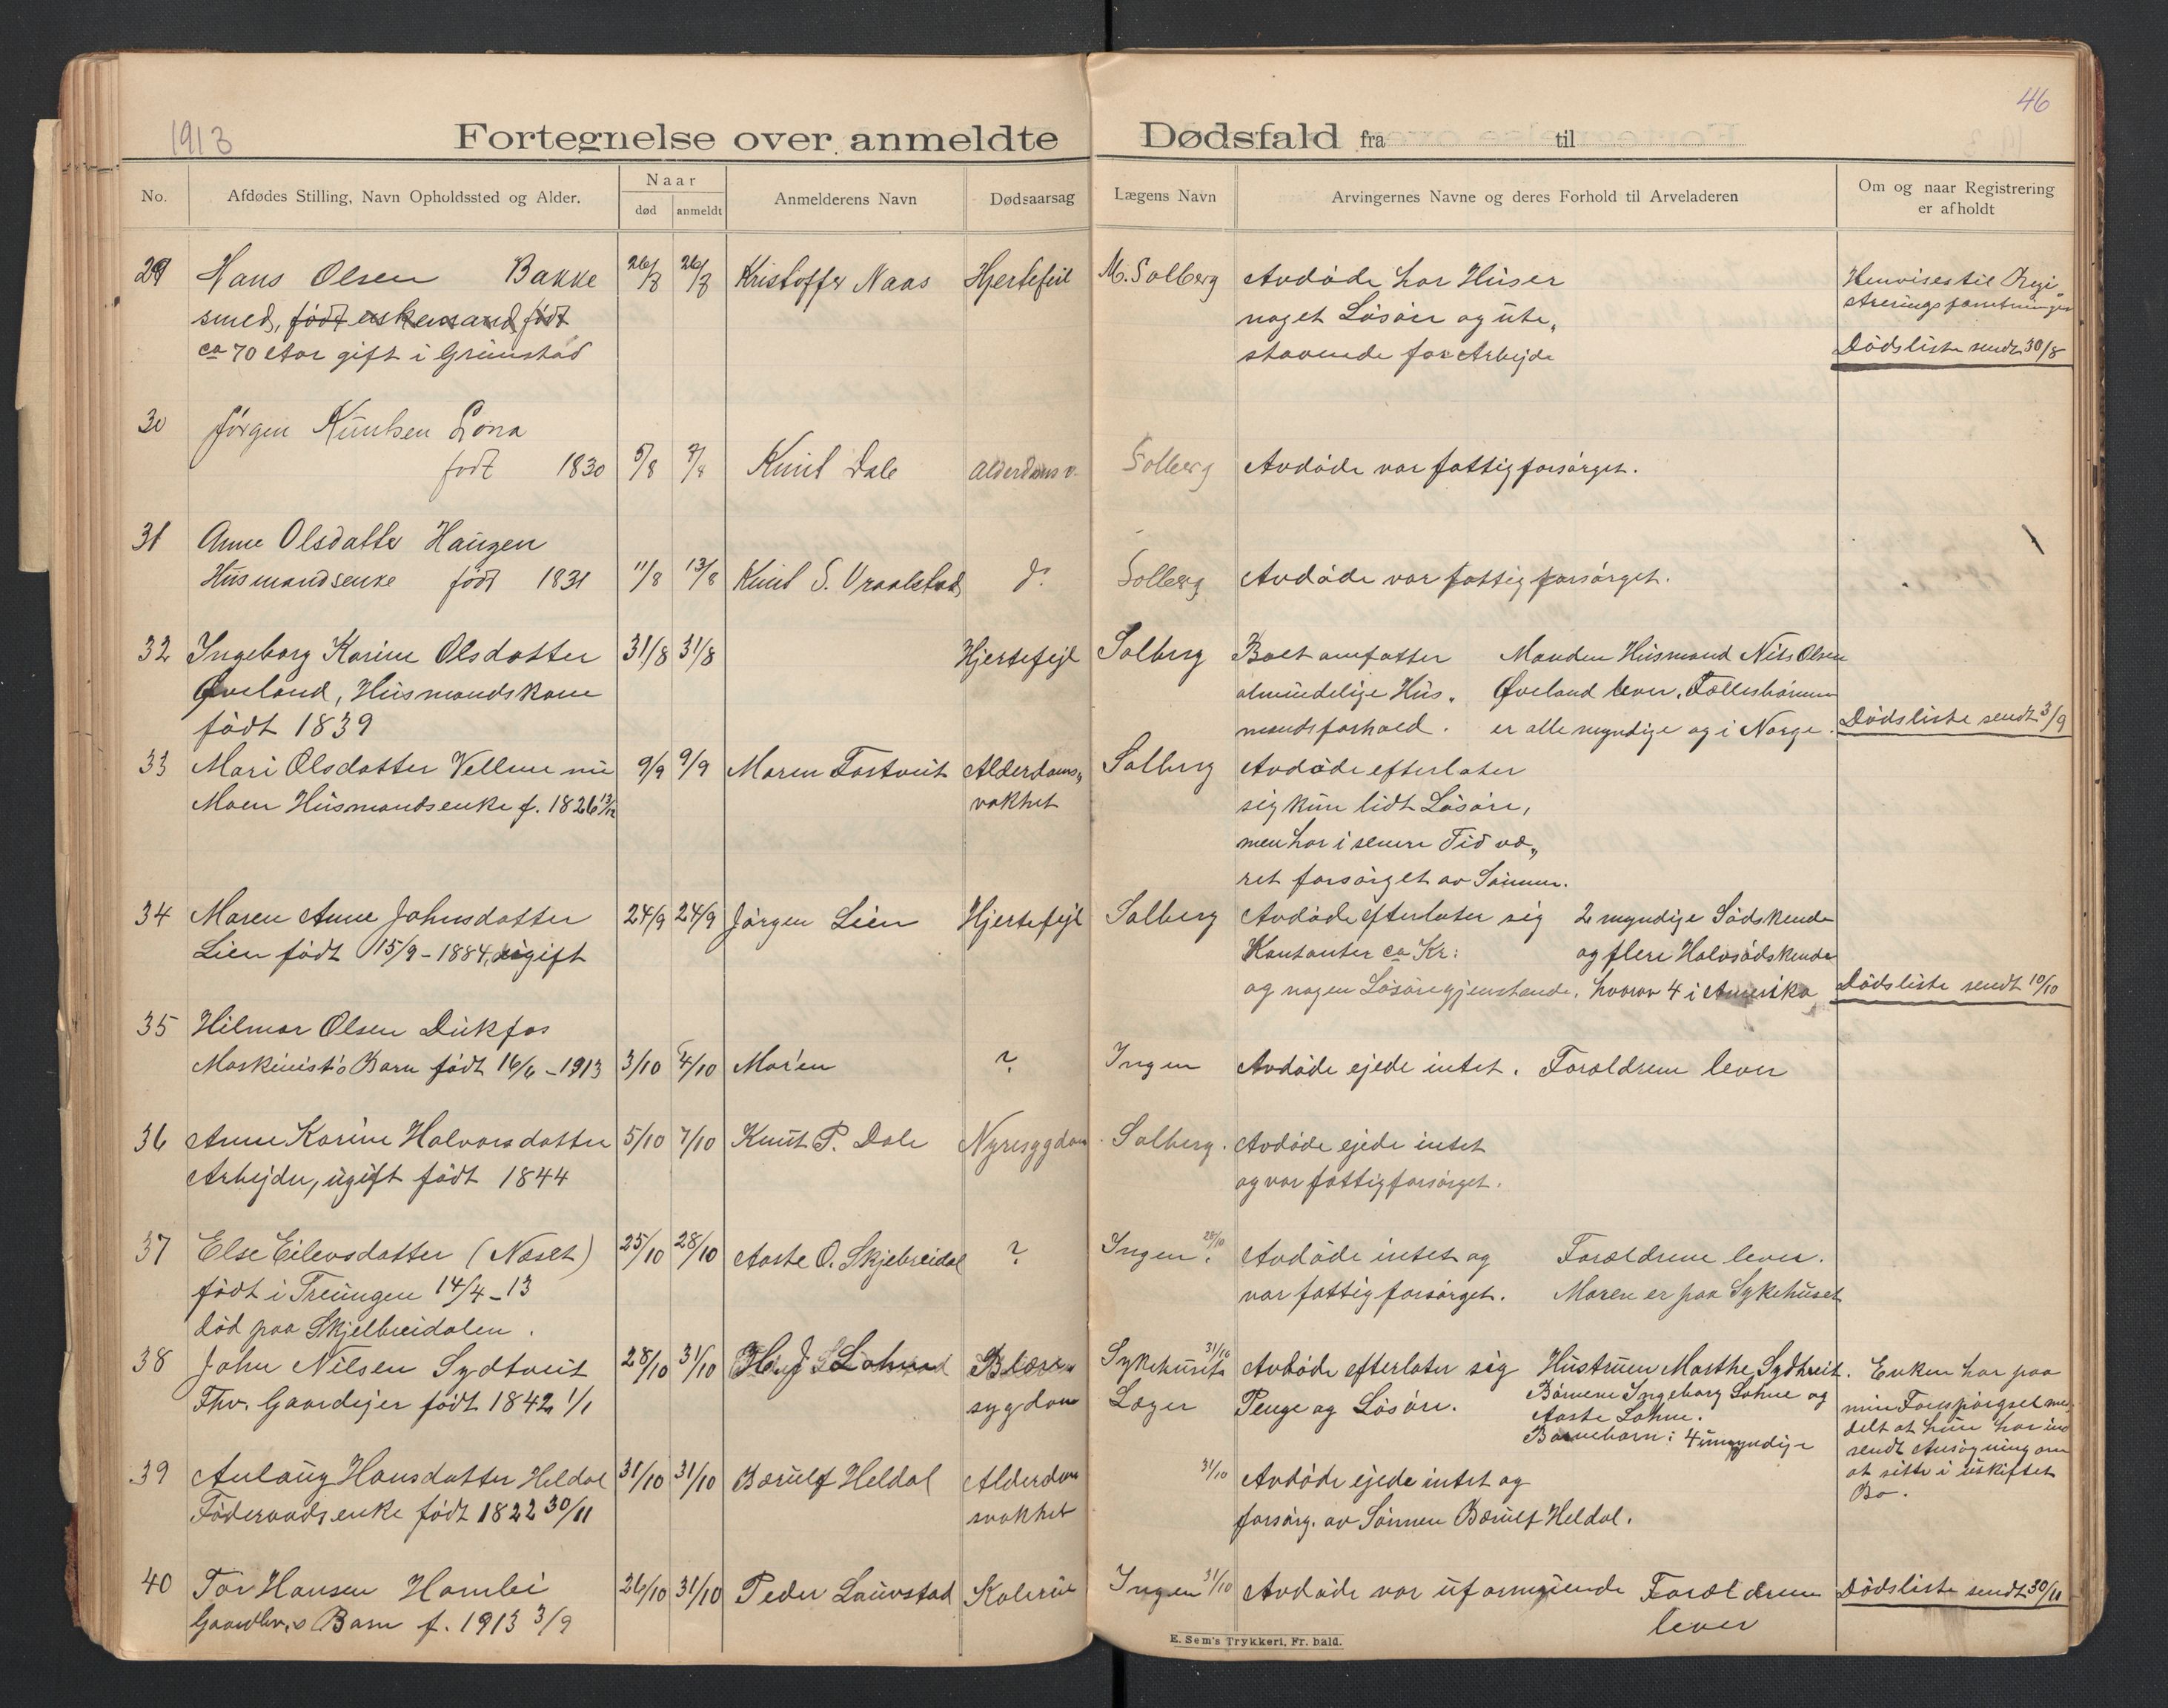 1913
46
Fortegnelse over anmeldte Dødsfald fra til
No.
Afdødes Stilling, Navn Opholdssted og Alder.
Naar
død
anmeldt
Anmelderens Navn
Dødsaarsag
Lægens Navn
Arvingernes Navne og deres Forhold til Arveladeren
Om og naar Registrering
er afholdt
29 Hans Olsen Bakke 26/8 26/8 Kristoffer Naas Hjertefeil M. Solberg Avdøde har Huser
smed, født
ca 70 Aar gift i Grimstad
noget Løsøre og ute„
staaende for Arbejde
Henvises til Regi„
streringsforretningen
Dødsliste sendt 30/8
30 Jørgen Knutsen Lona
født 1830 5/8 7/8 Knut Dale Alderdoms v. Solberg Avdøde var fattigforsørget.
31 Anne Olsdatter Haugen
Husmandsenke født 1831 11/8 13/8 Knut S. Vraalstad do. Solberg Avdøde var fattigforsørget.
32 Ingeborg Karine Olsdatter 31/8 31/8 Hjertefejl Solberg Boet omfatter Manden Husmand Nils Olsen
Øveland, Husmandskone almindelige Hus„ Øveland lever. Fællesbørnene
født 1839 mandsforhold. er alle myndige og i Norge. Dødsliste sendt 3/9
33 Mari Olsdatter Vellene nu 9/9 9/9 Maren Tostveit Alderdoms„ Solberg Avdøde efterlater
Moen Husmandsenke f. 1826 13/12 svakhet sig kun lidt Løsøre,
men har i senere Tid væ„
ret forsørget av Sønnen.
34 Maren Anne Johnsdatter 24/9 24/9 Jørgen Lien Hjertefejl Solberg Avdøde efterlater sig 2 myndige Sødskende
Lien født 15/9-1884, ugift Kontanter ca Kr: og flere Halvsødskende
og nogen Løsøregjenstande. hvorav 4 i Amerika Dødsliste sendt 10/10
35 Hilmar Olsen Dukfos
Maskinist's Barn født 16/6-1913 3/10 4/10 Mor'en ? Ingen Avdøde ejede intet. Forældrene lever
36 Anne Karine Halvorsdatter 5/10 7/10 Knut P. Dale Nyresygdom Solberg. Avdøde ejede intet
Arbejder, ugift født 1844 og var fattigforsørget.
37 Else Eilevsdatter (Næset) 25/10 28/10 Aaste O. Skjebreidal ? Ingen. 28/10 Avdøde intet og Forældrene lever.
født i Treungen 14/4-13 var fattigforsørget. Moren er paa Sykehuset
død paa Skjelbreidalen.
38 John Nilsen Sydtveit 28/10 31/10 Blære Sykehusets 31/10 Avdøde efterlater sig Hustruen Marthe Sydtveit.
Fhv. Gaardejer født 1842 1/1 sygdom Læger Penge og Løsøre. Børnene Ingeborg Lohne og
Aaste Lohne.
Barnebarn: 4 umyndige
Enken har paa
min Forespørgsel med„
delt at hun har ind
sendt Ansøgning om
at sitte i uskiftet
Bo.
39 Anlaug Hansdatter Heldal 31/10 31/10 Bærulf Heldal Alderdoms 31/10 Avdøde ejede intet og
Føderaadsenke født 1822 30/11 svakhet forsørg. av Sønnen Bærulf Heldal.
40 Tor Hansen Hamlei 26/10 31/10 Peder Lauvstad Kolerine Ingen 31/10 Avdøde var uformuende Forældrene Dødsliste sendt 30/11
Gaardbr.s Barn f. 1913 3/9 lever
E. Sem's Trykkeri, Fr. hald.